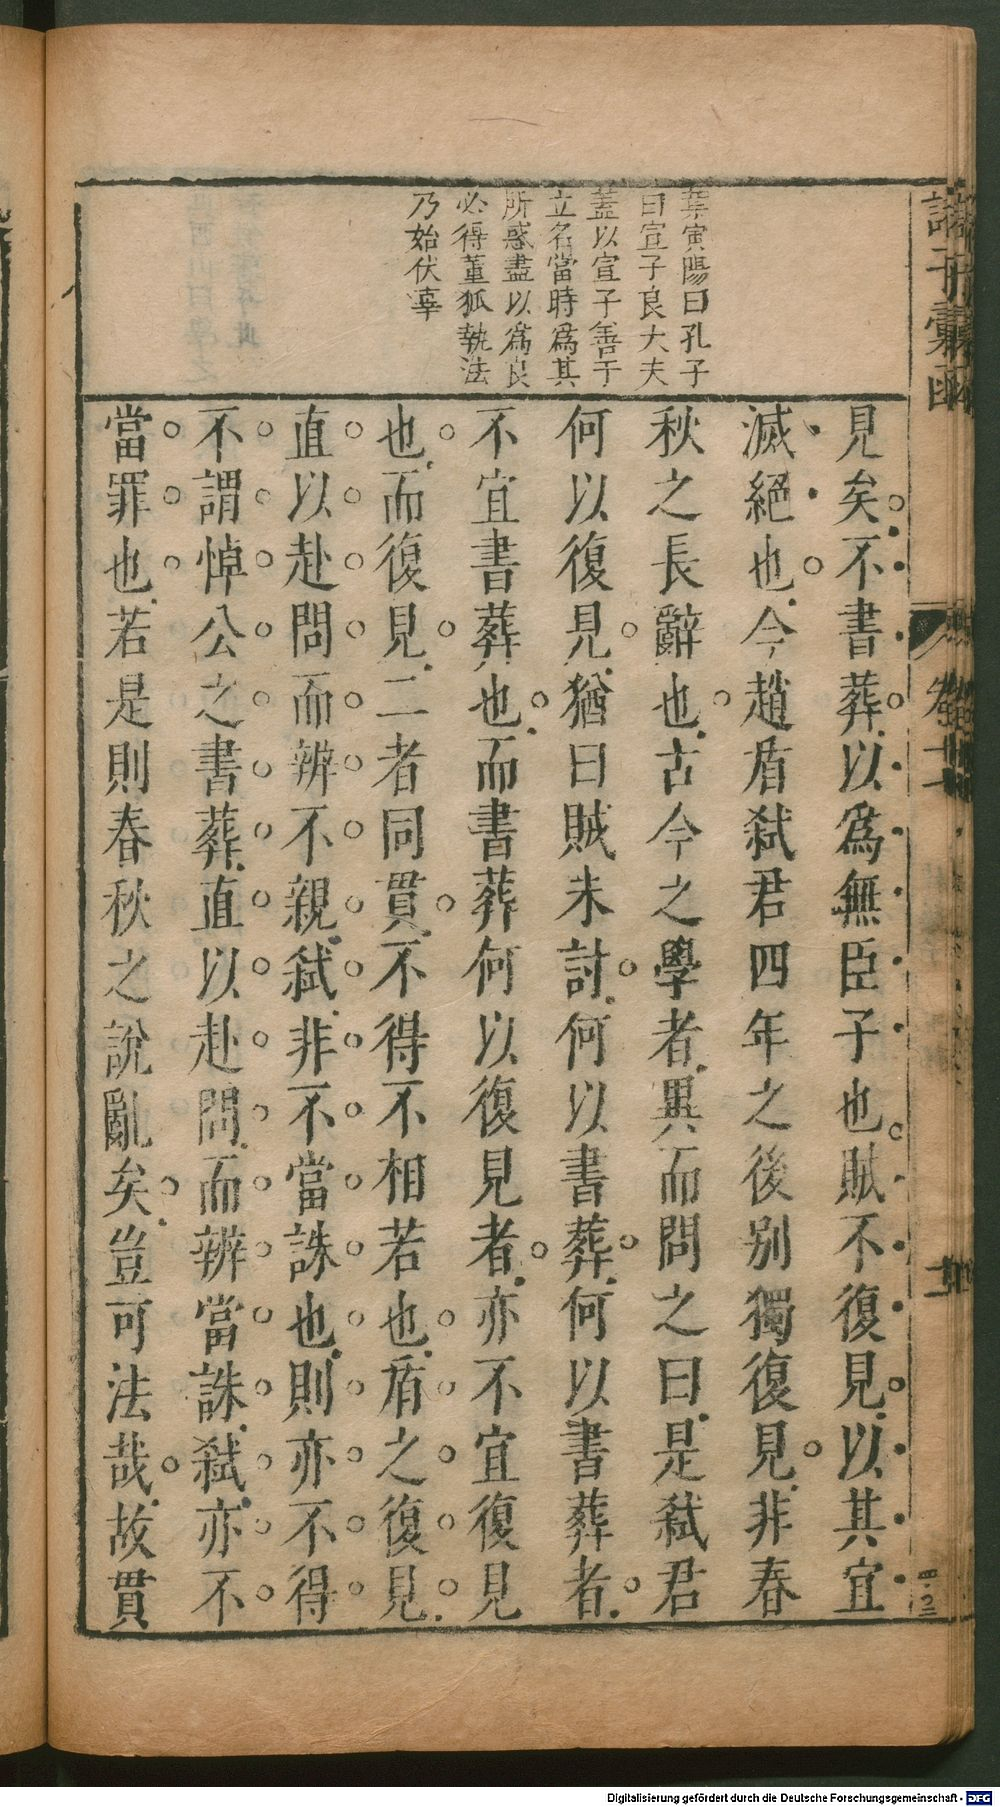 葉寅陽曰孔子
曰宣子良大夫
蓋以宣子善于
立名當時為其
所惑盡以為良
必得董狐執法
乃始伏辜
見矣不書葬以爲無臣子也賊不復見以其宜
滅絕也今趙盾弒君四年之後别獨復見非春
秋之長辭也古今之學者異而問之曰是弒君
何以復見猶曰賊未討何以書葬何以書葬者
不宜書葬也而書葬何以復見者亦不宜復見
也而復見二者同貫不得不相若也盾之復見
直以赴問而辨不親弒非不當誅也則亦不得
不謂悼公之書葬直以赴問而辨當誅弒亦不
當罪也若是則春秋之說亂矣豈可法哉故貫
諸子彙函
卷十
Digitalisierung gefördert durch die Deutsche Forschungsgemeinschaft - DFG